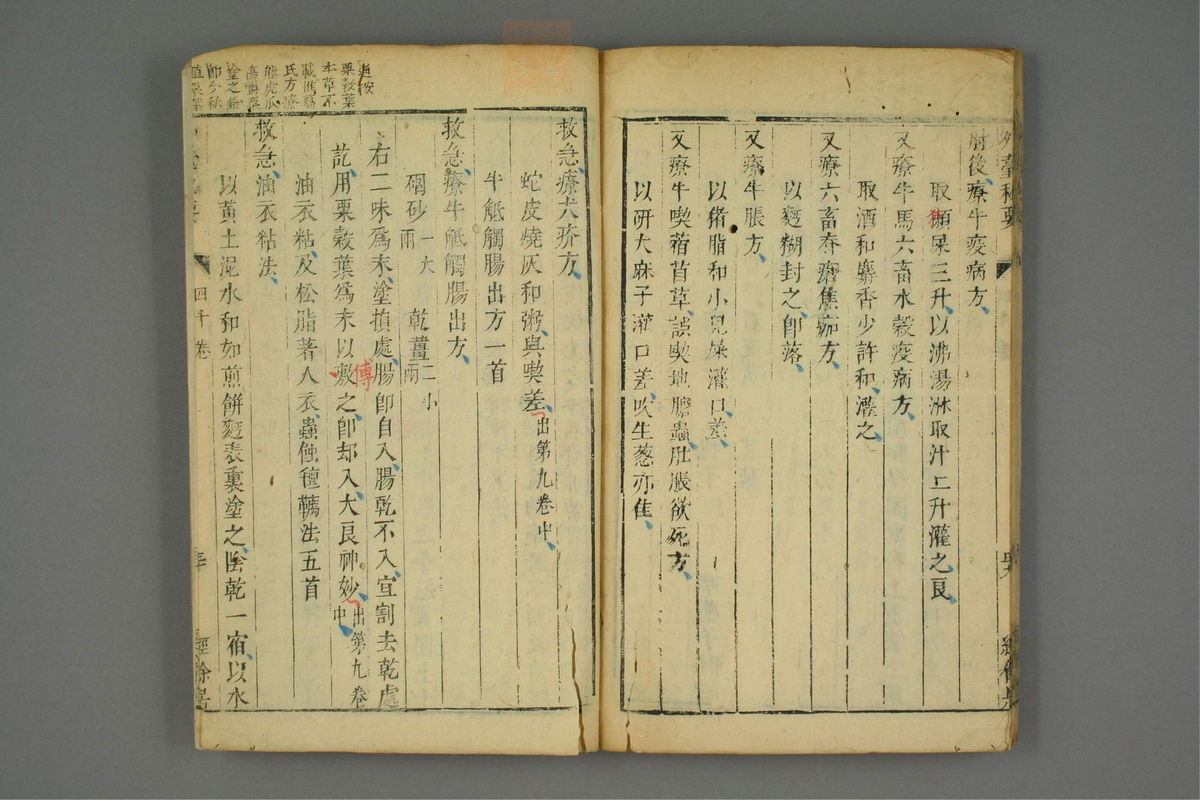 外臺秘要
肘後療牛疫病方
取兎頭屎三升以沸湯淋取汁二升灌之良
又療牛馬六畜水穀疫病方
取酒和麝香少許和灌之
又療六畜瘡焦痂方
以麪糊封之即落
又療牛脹方
以猪脂和小兒屎灌口差
又療牛喫䓘苜草誤喫地膽蟲肚脹欲死方
以研大麻子灌口差吹生葱亦佳
救急療犬疥方
蛇皮燒灰和粥與喫差出第九卷中
牛觝觸腸出方一首
救急療牛觝觸腸出方
硇砂一大兩 乾薑二小兩
右二味爲末塗損處腸即自入腸乾不入宜割去乾處
訖用粟穀葉爲末以敷之即却入大良神妙出第九卷中
傅
油衣粘及松脂著人衣蟲蝕氊韉法五首
救急油衣粘法
以黃土泥水和如煎餅麪表裏塗之陰乾一宿以水
四十卷
經餘居
粟穀葉
本草不
載
氏方療
熊虎爪